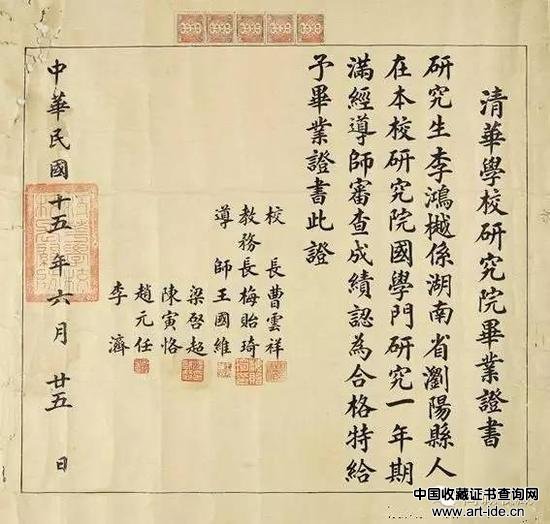 清華學校研究院畢業證書
研究生李鴻樾係湖南省瀏陽縣人
在本校研究院國學門研究一年期
滿經導師審查成績認為合格特給
予畢業證書此證
校長曹雲祥
教務長梅貽琦
導師王國維
梁啓超
陳寅恪
趙元任
李濟
中華民國十五年六月廿五日
中国收藏证书查询网
www.art-ide.cn